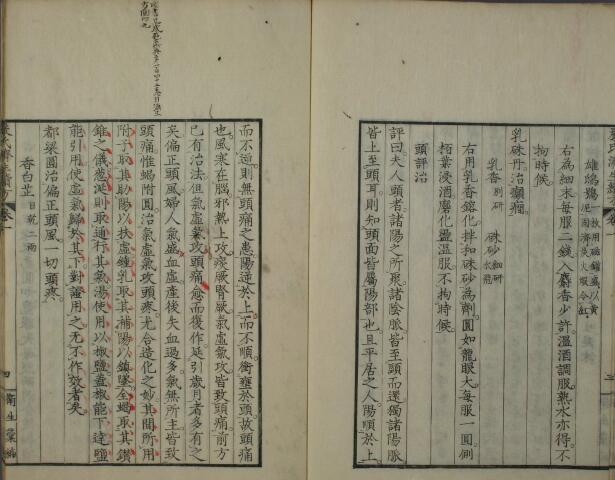 雄鴟鴞一枚用磁鑵盛以黃
泥固濟炭火煅令紅
右為細末每服二錢入麝香少許溫酒調服熟水亦得不
拘時候
乳硃丹治癲癇
乳香別研 硃砂細研水飛
右用乳香鎔化拌和硃砂為劑圓如龍眼大每服一圓側
栢葉浸酒磨化溫服不拘時候
頭評治
評曰夫人頭者諸陽之所聚諸陰脈皆至頭而還獨諸陽脈
皆上至頭耳則知頭面皆屬陽部也且平居之人陽順於上
而不逆則無頭痛之患陽逆於上而不順衝壅於頭故頭痛
也風寒在腦邪熱上攻痰厥腎厥氣虛氣攻皆致頭痛前方
已有治法但氣虛氣攻頭痛愈而復作延引歲月者多有之
矣偏正頭風婦人氣盛血虛產後失血過多氣無所主皆致
頭痛惟蝎附圓治氣虛氣攻頭疼尤合造化之妙其間所用
附子取其助陽以扶虛鍾乳取其補陽以鎮墜全蝎取其鑽
錐之儀葱涎則取通行其氣湯使用以椒鹽蓋椒能下達鹽
能引用使虛氣歸於其下對證用之無不作效者矣
都梁圓治偏正頭風一切頭疼
香白芷日乾二兩
四
衛生彙編